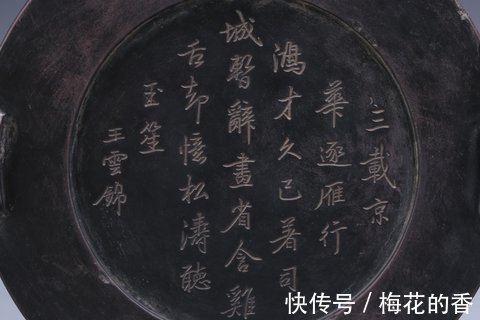 三載京
華逐雁行
鴻才久已著司
城暫辭畫省含雞
舌却憶松濤聽
玉笙
王雲錦
快传号 / 梅花的香